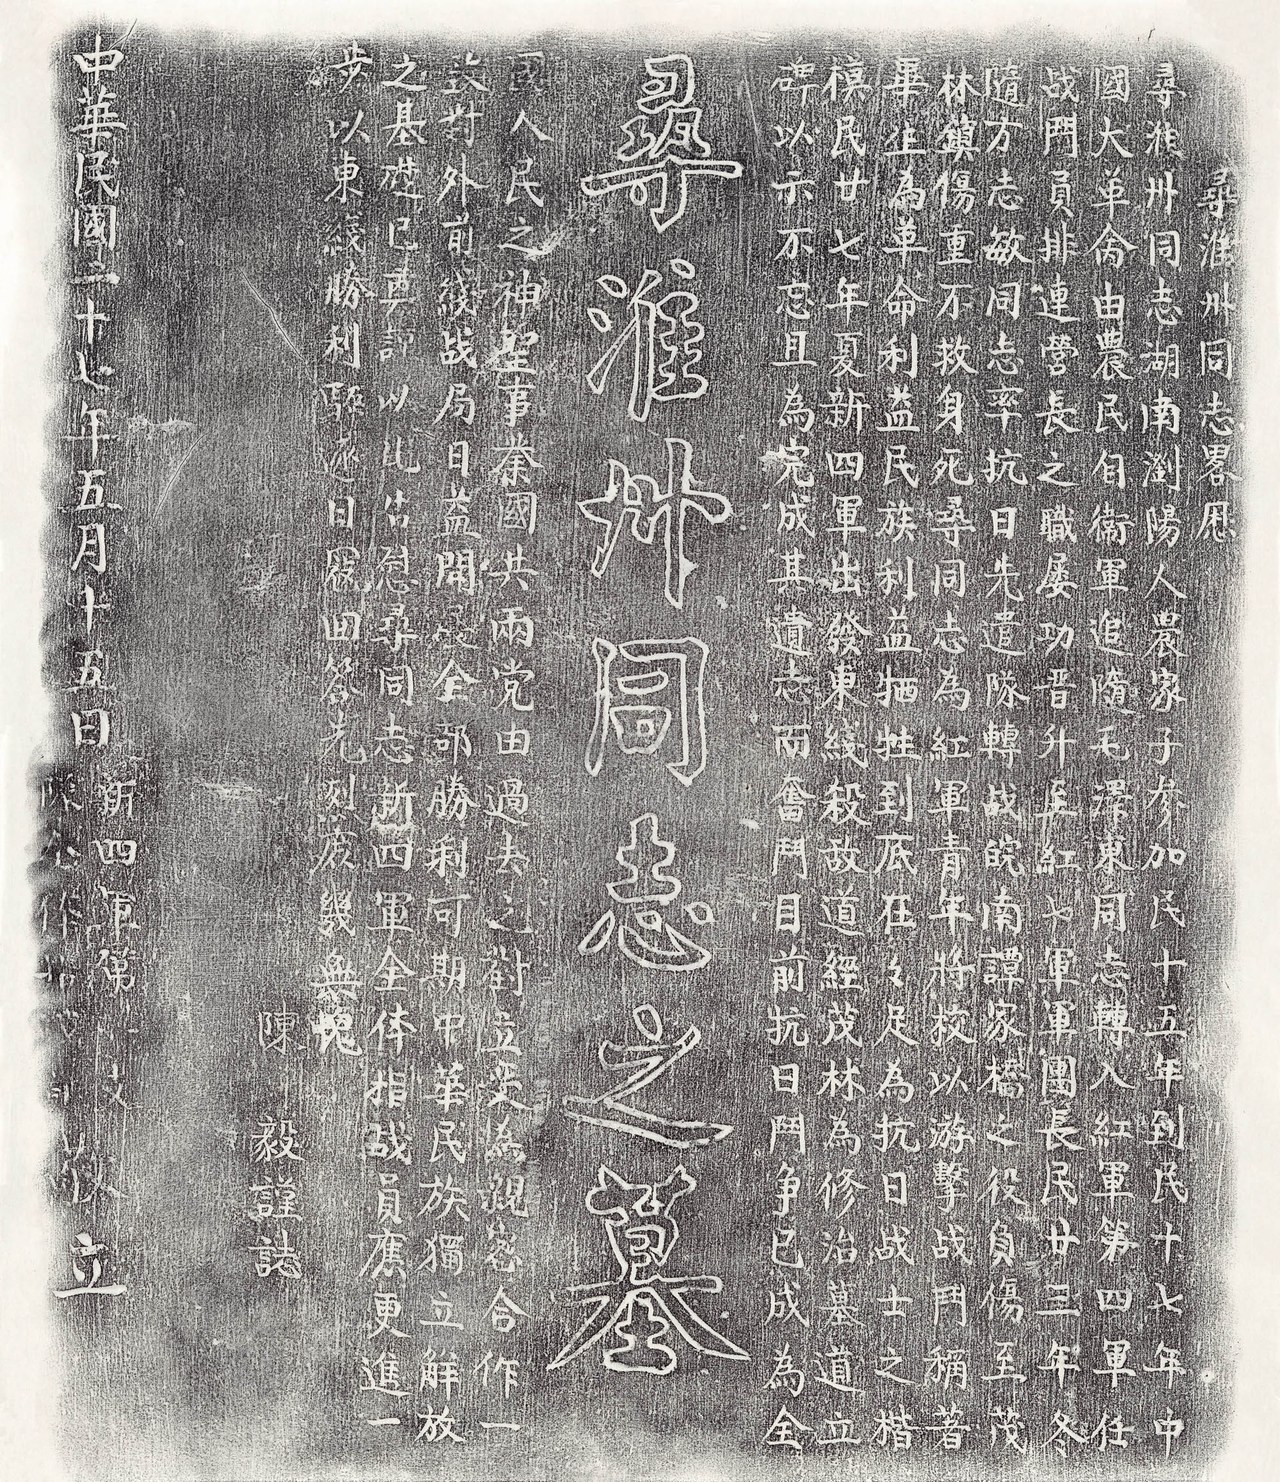 尋淮州同志畧歷
尋淮州同志湖南瀏陽人農家子參加民十五年到民十七年中
國大革命由農民自衛軍追隨毛澤東同志轉入紅軍第四軍任
战鬥員排連營長之職屢功晋升至紅七軍軍團長民廿三年冬
隨方志敏同志率抗日先遣隊轉战皖南譚家橋之役負傷至茂
林鎮傷重不救身死尋同志為紅軍青年將校以游擊战鬥稱著
畢生為革命利益民族利益牺牲到底在々足為抗日战士之楷
模民廿七年夏新四軍出發東綫殺敌道經茂林為修治墓道立
碑以示不忘且為完成其遺志而奮鬥目前抗日鬥争已成為全
尋淮州同志之墓
國人民之神聖事業國共兩党由過去之對立变為親密合作一
致對外前綫战局日益開展全部勝利可期中華民族獨立解放
之基礎已奠定以此告慰尋同志新四軍全体指战員應更進一
步以東綫勝利驅逐日寇回答先烈庶幾無愧
陳毅謹誌
中華民國二十七年五月十五日
新四軍第一支
陳立